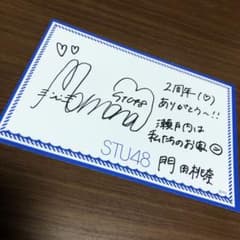 Momona
STU48
2周年(♡)
ありがとう〜!!
瀬戸内は
私たちのお家
STU48
門田桃奈